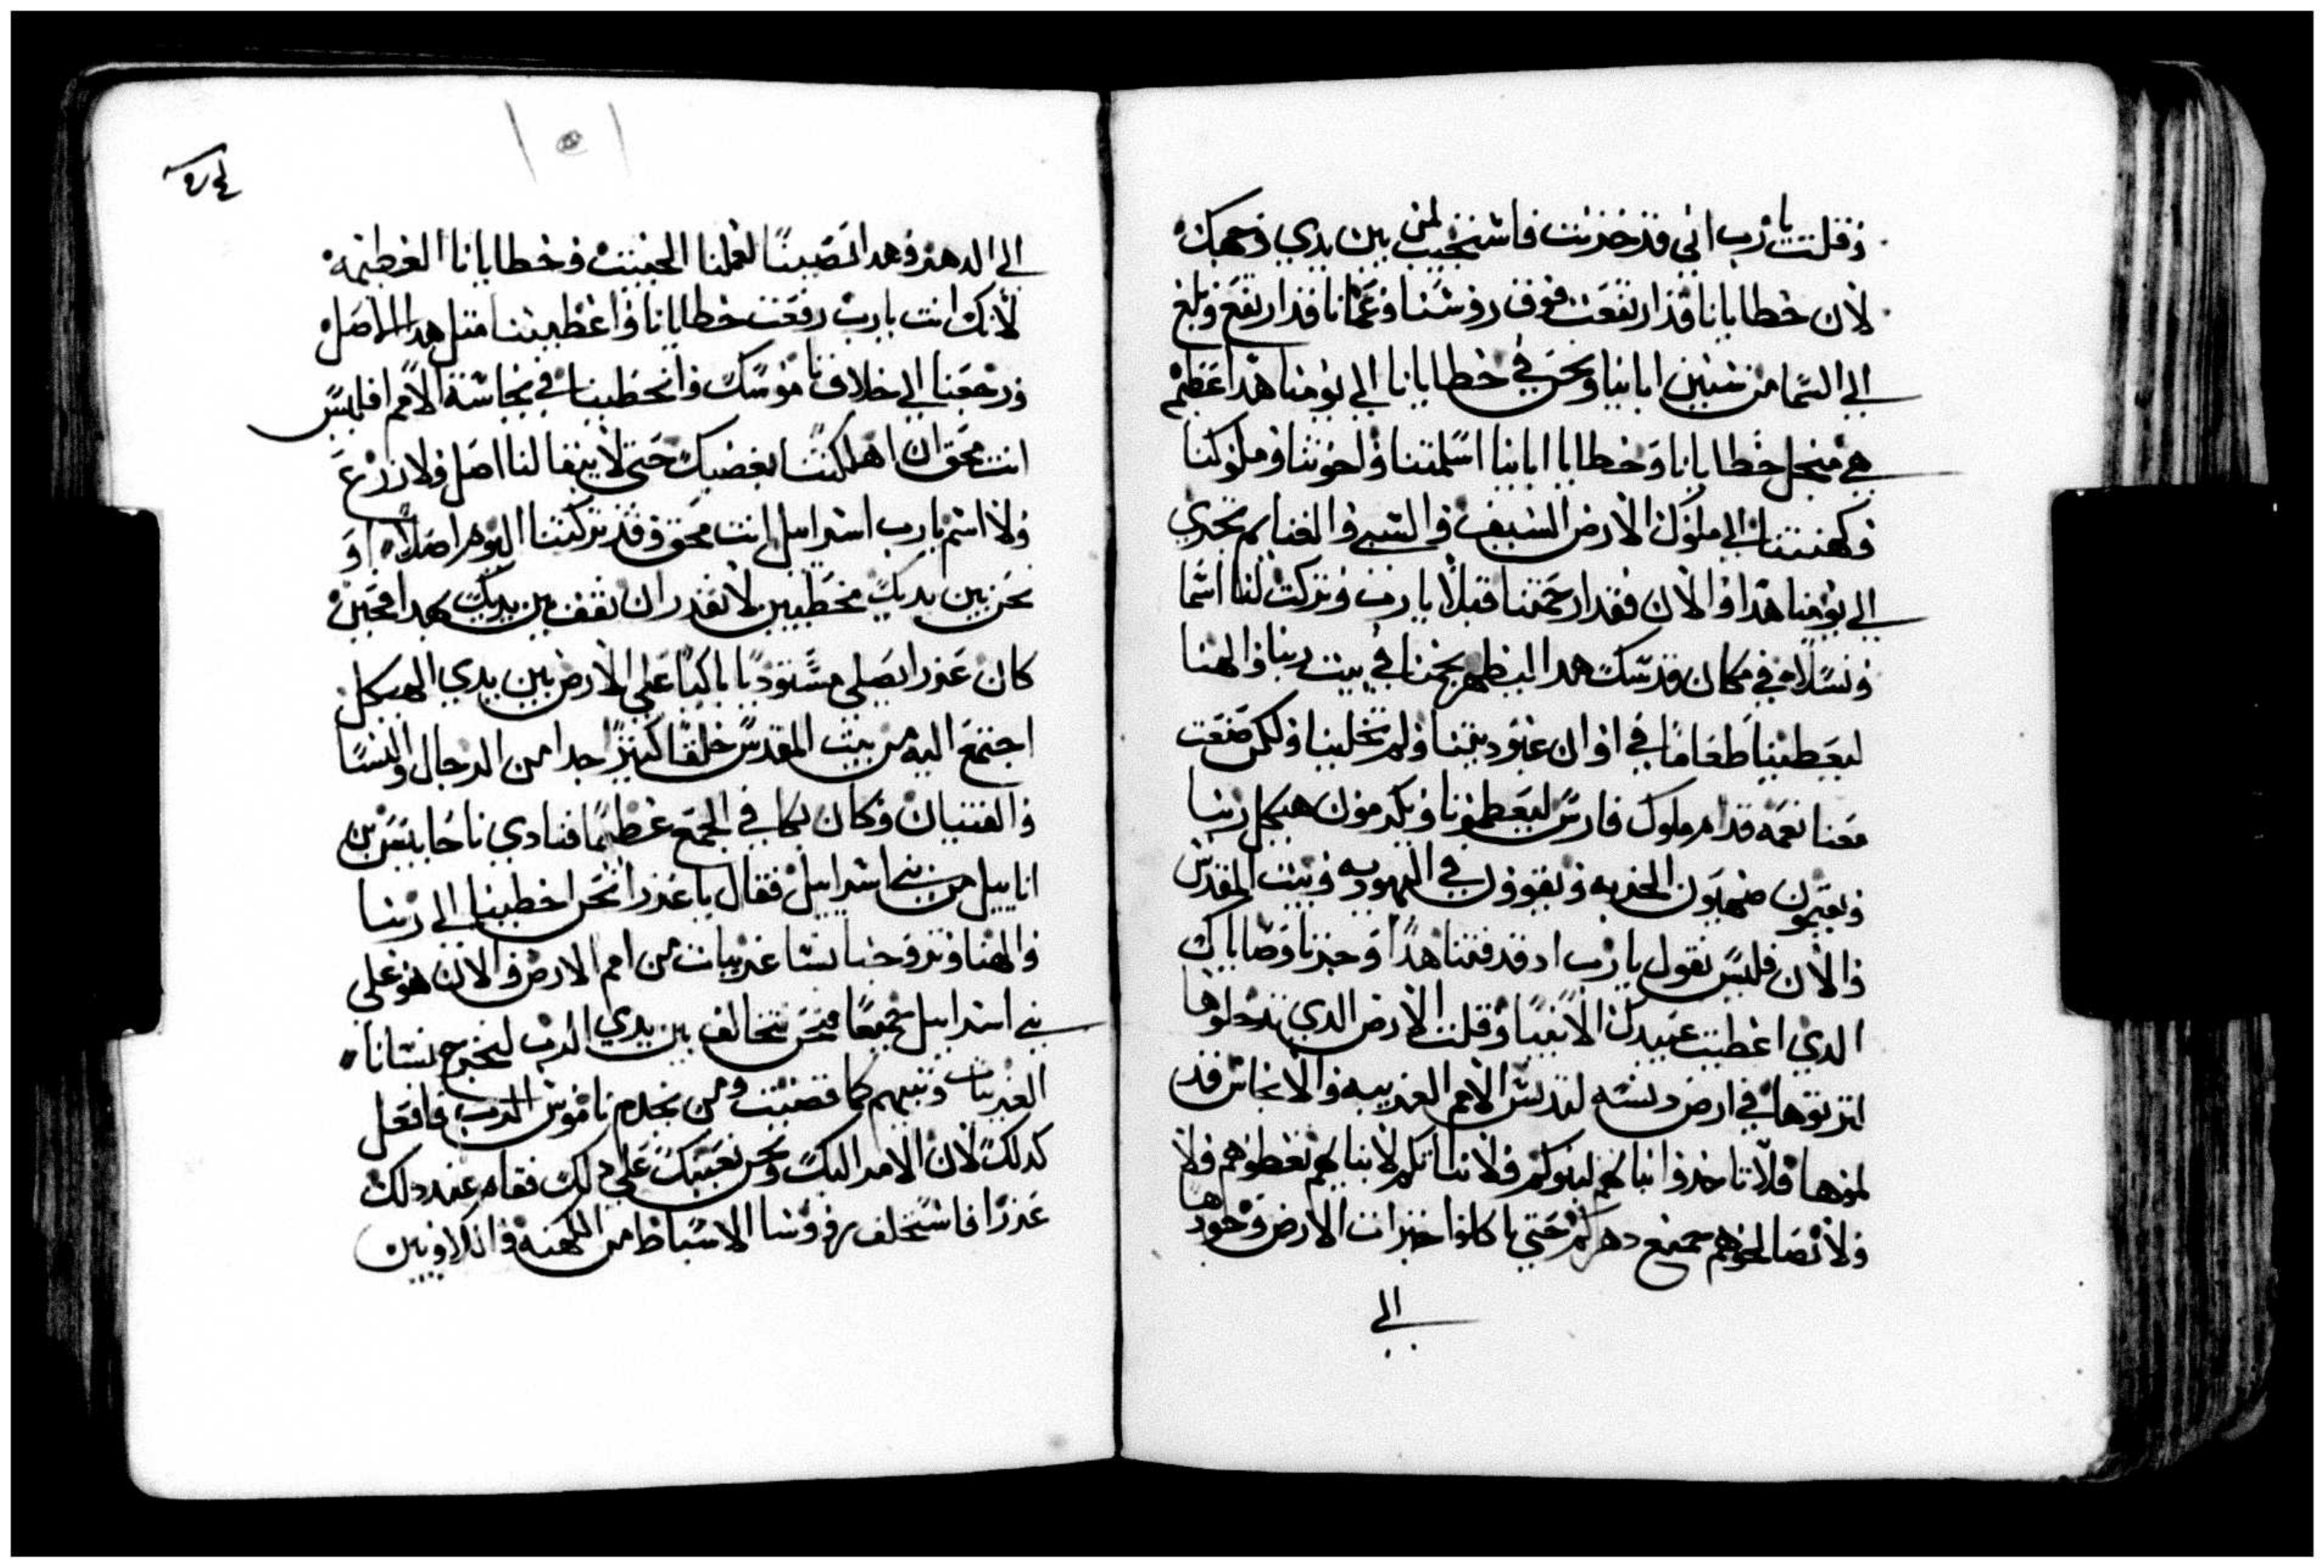 وقلت يارب اني قد خزيت فاستحييت لمن بين يدي وجهك
لان خطايانا قد ارتفعت فوق روسنا وغمانا قد ارتفع وبلغ
الي السما من سنين ابانيا ونحن في خطايانا الي يومنا هدا عظيم
هي منجل خطايانا وخطايا ابانيا اسلمتنا واخوتنا وملوكنا
وكهنتنا الي ملوك الارض السيف والسبي والغنايم تجدي
الي يومنا هدا والان فقد ارحمتنا قبلا يارب وتركت لنا اسما
ونسلا في مكان قدسك هدا ليظهر نجمنا في بيت ربنا والهنا
ليعطينا طعاما في اوان عبوديتنا ولم تخلينا ولكن صنعت
معنا نعمه قدام ملوك فارس ليعطونا ويكرمون هيكل ربنا
ويعيمون صهيون الخربه ويقوون في اليهوديه وبيت المقدس
والان فليس نقول يارب اد قد فتنا هدا وحزنا وصاياك
الدي اعطيت عبيدك الانبيا وقلت الارض الدي تدخلوها
لترتوها في ارض دنسه لتدنس الامم الغريبه والانجاس قد
لموها فلا تاخدوا بناتهم لبنوكم ولا بناتكم لابنايهم تعطوهم ولا
ولا تصالحوهم جميع دهركم حتي تاكلوا خيرات الارض وتحودها
الي
الي الدهر وهدا تصيبنا لعملنا الخبيت وخطايانا العظيمه
لانك انت يارب رفعت خطايانا واعطيتنا متل هدا الاصل
ورجعنا الي خلاف ناموسك وانخطينا في نجاسة الامم افليس
انت محق ان اهلكتنا بغضبك حتي لا يبقا لنا اصل ولا زرع
ولا اسم يارب اسراييل انت محق وقد تركتنا اليوم اصلا او
نحن بين يديك مخطيين لا نقدر ان نقف بين يديك بهدا فحين
كان عزرا يصلي مستودیا باكيا علي الارض بين يدي الهيكل
اجتمع اليه من بيت المقدس خلقا كتيرا جدا من الرجال والنسا
والفتيان وكان بكا في الجمع عظيما فنادي ناحابيس بن
اناييل من بني اسراييل فقال يا عزرا نحن اخطينا الي ربنا
والهنا وتزوجنا نسا غريبات من امم الارض والان هو علي
بني اسراييل جميعا فنحن نتحالف بين يدي الرب لنخرج نسانا
الغريبات وبنيهم كما قضيت ومن يخدم ناموس الرب فافعل
كدلك لان الامر اليك ونحن نعينك علي دلك فقام عند دلك
عزرا فاستحلف روسا الاسباط من الكهنه والاويين